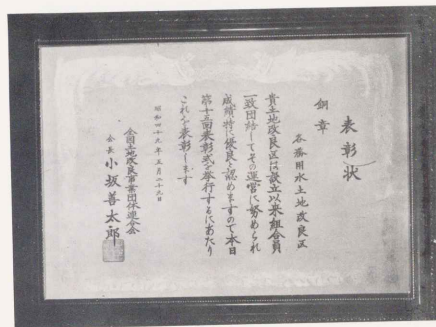 表彰状
銅章
各務用水土地改良区
貴土地改良区は設立以来組合員
一致団結してその運営に努められ
成績特に優良と認めますので本日
第十五回表彰式を挙行するにあたり
これを表彰します
昭和四十九年三月二十九日
全国土地改良事業団体連合会
会長 小坂善太郎